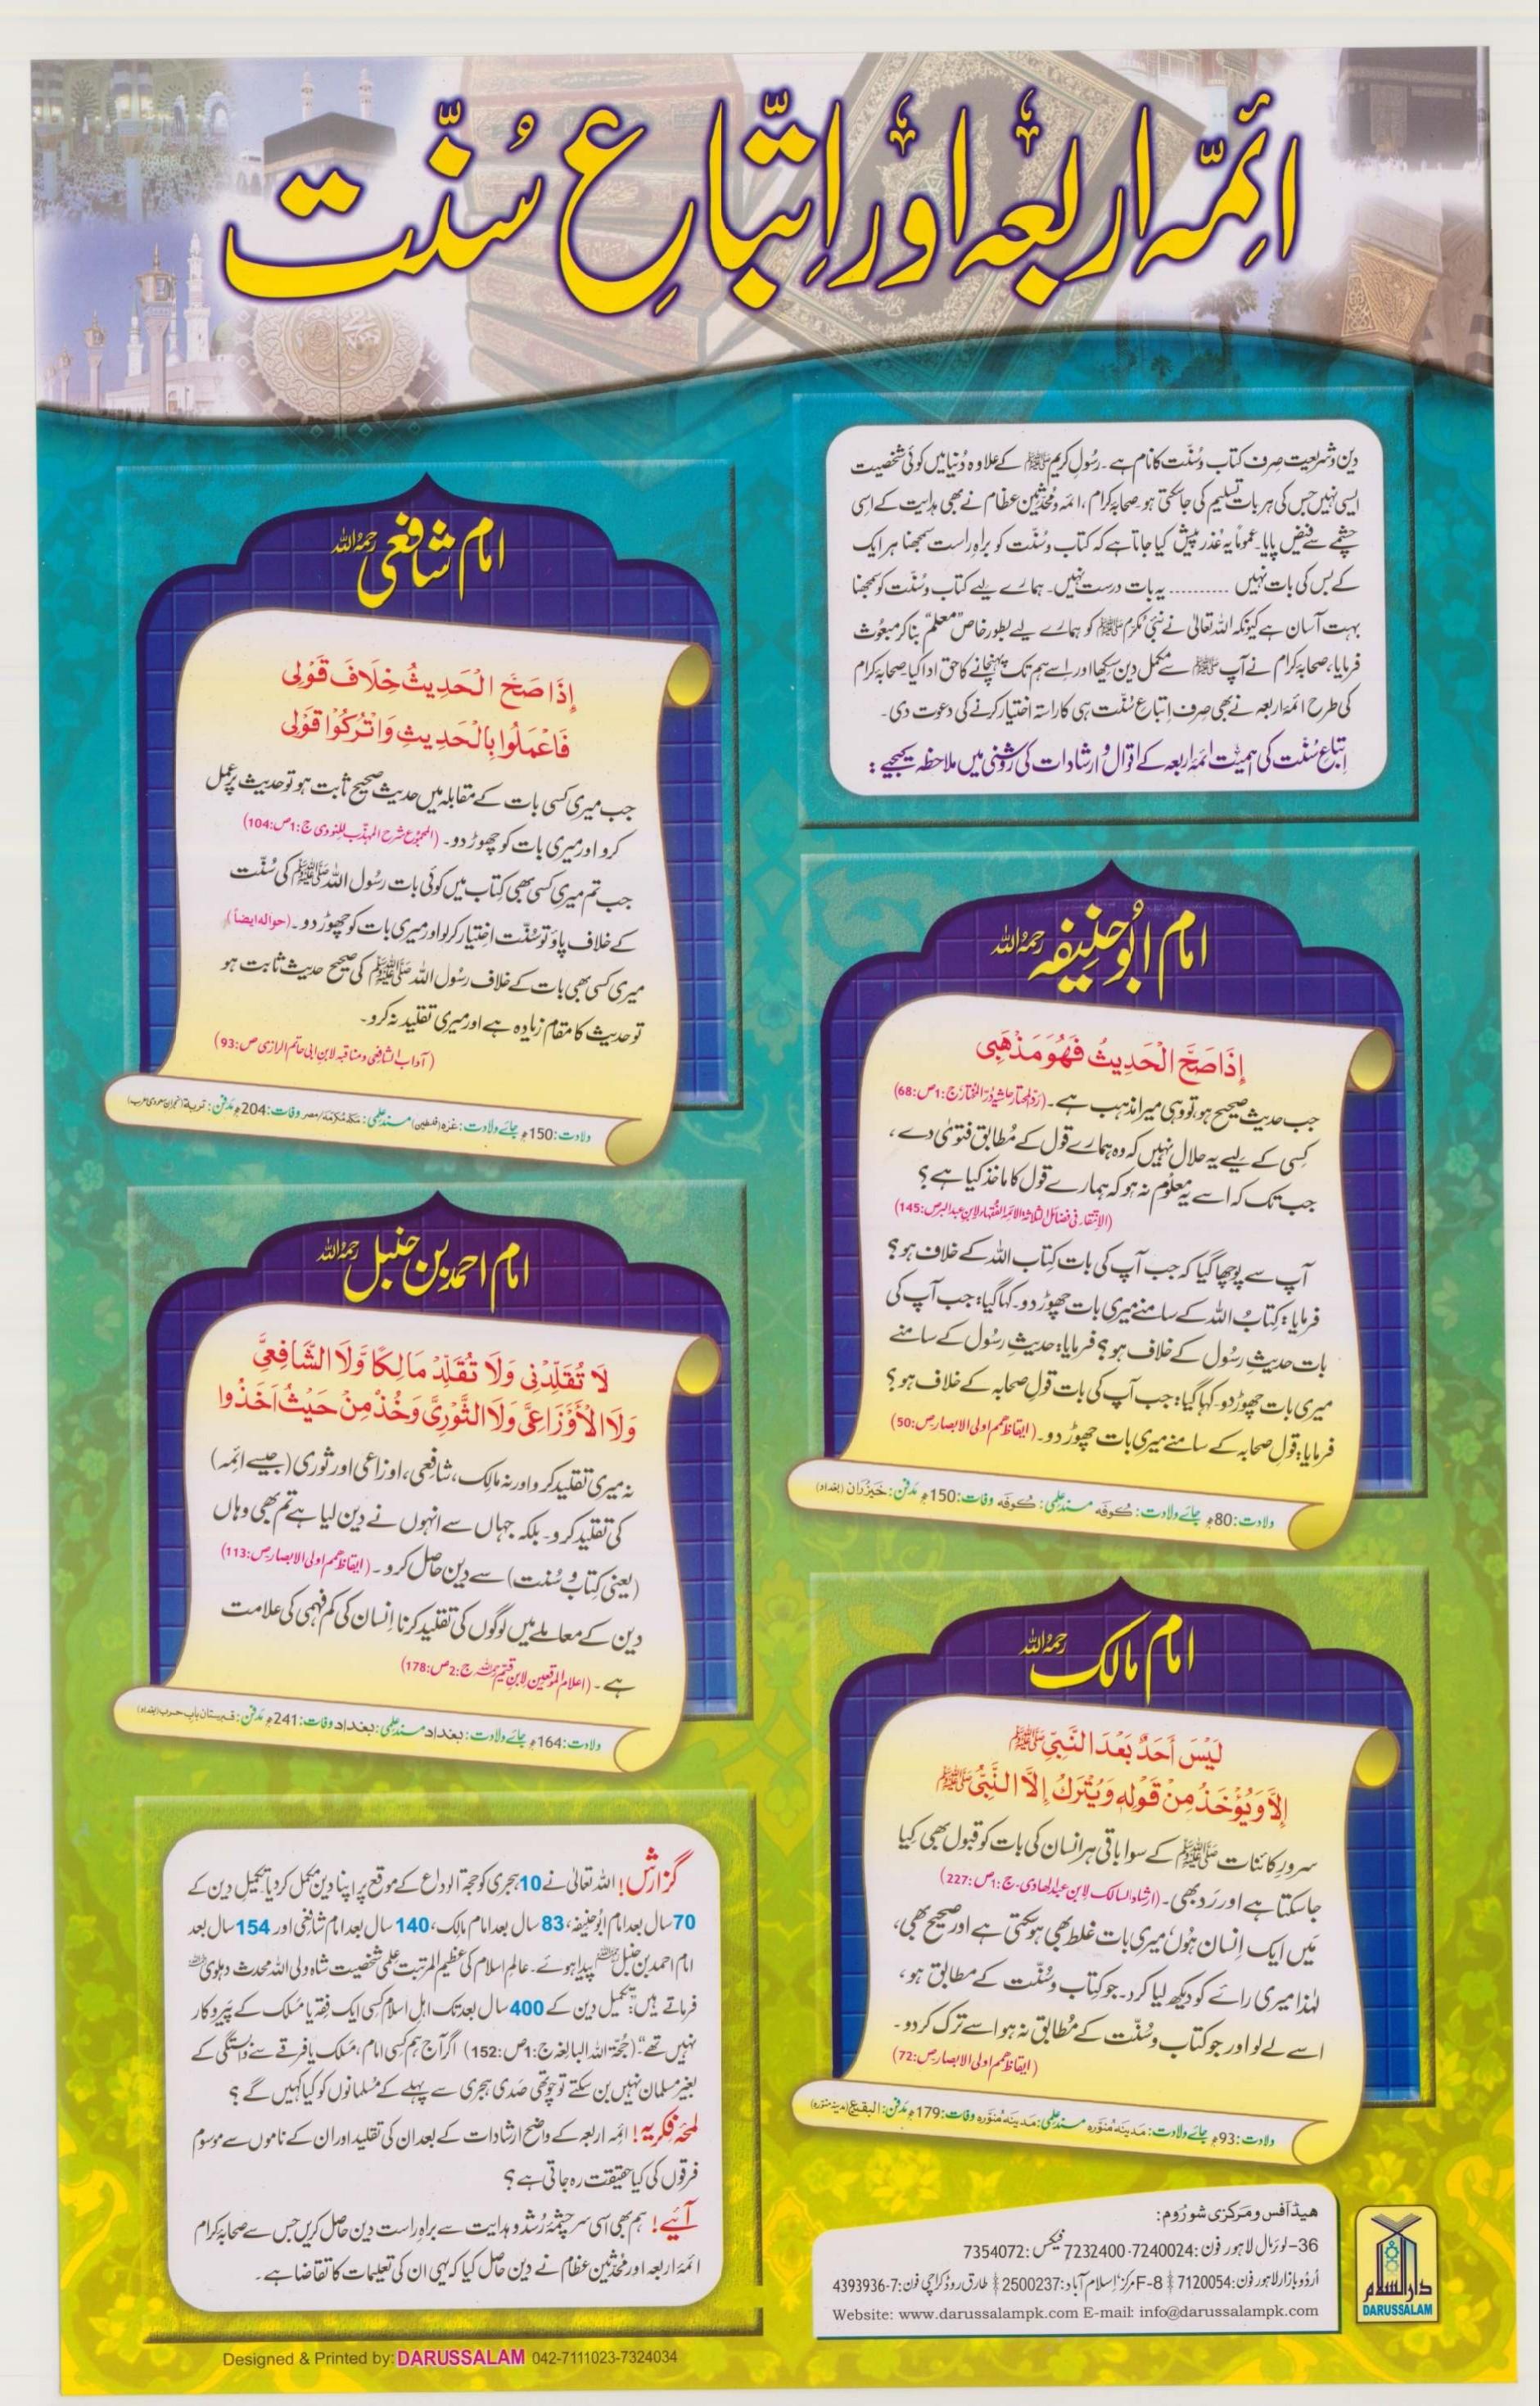 ائمہ اربعہ اور اتباعِ سنّت
دین و شریعت صرف کتاب و سُنّت کا نام ہے۔ رسُولِ کریم ﷺ کے علاوہ دُنیا میں کوئی شخصیت
ایسی نہیں جس کی ہر بات تسلیم کی جاسکتی ہو۔ صحابہ کرام، ائمہ و مُحدّثین عظام نے بھی ہدایت کے اسی
چشمے سے فیض پایا۔ عموماً یہ عُذر پیش کیا جاتا ہے کہ کتاب و سُنّت کو براہِ راست سمجھنا ہر ایک
کے بس کی بات نہیں .......... یہ بات درست نہیں۔ ہمارے لیے کتاب و سُنّت کو سمجھنا
بہت آسان ہے کیونکہ اللہ تعالیٰ نے نبیٔ مکرّم ﷺ کو ہمارے لیے بطورِ خاص ”معلّم“ بنا کر مبعوث
فرمایا، صحابہ کرام نے آپ ﷺ سے مکمل دین سیکھا اور اسے ہم تک پہنچانے کا حق ادا کیا۔ صحابہ کرام
کی طرح ائمہ اربعہ نے بھی صرف اتباعِ سُنّت ہی کا راستہ اختیار کرنے کی دعوت دی۔
اتباعِ سُنّت کی اہمیت ائمہ اربعہ کے اقوال و ارشادات کی روشنی میں ملاحظہ کیجیے :
امام ابُو حنیفہ رحمہُ اللہ
إِذَا صَحَّ الْحَدِيثُ فَهُوَ مَذْهَبِي
جب حدیث صحیح ہو، تو وہی میرا مذہب ہے۔ (ردّالمحتار حاشیہ دُرّالمختار ج:1ص:68)
کسی کے لیے یہ حلال نہیں کہ وہ ہمارے قول کے مُطابق فتوٰی دے،
جب تک کہ اسے یہ معلُوم نہ ہو کہ ہمارے قول کا ماخذ کیا ہے؟
(الانتقاء فی فضائل الثلاثة الائمة الفقہاء لابن عبدالبر ص:145)
آپ سے پوچھا گیا کہ جب آپ کی بات کتاب اللہ کے خلاف ہو؟
فرمایا: کتابُ اللہ کے سامنے میری بات چھوڑ دو۔ کہا گیا: جب آپ کی
بات حدیثِ رسُول کے خلاف ہو؟ فرمایا: حدیثِ رسُول کے سامنے
میری بات چھوڑ دو۔ کہا گیا: جب آپ کی بات قولِ صحابہ کے خلاف ہو؟
فرمایا: قولِ صحابہ کے سامنے میری بات چھوڑ دو۔ (ایقاظ ھمم اولی الابصار ص:50)
ولادت:80ھ جائے ولادت: کُوفَہ مسندِ علمی: کُوفَہ وفات:150ھ مَدفن: خَیزُران (بغداد)
امام مالک رحمہُ اللہ
لَيْسَ أَحَدٌ بَعْدَ النَّبِيِّ ﷺ
إِلَّا وَيُؤْخَذُ مِنْ قَوْلِهِ وَيُتْرَكُ إِلَّا النَّبِيُّ ﷺ
سرورِ کائنات ﷺ کے سوا باقی ہر انسان کی بات کو قبول بھی کیا
جاسکتا ہے اور رَد بھی۔ (ارشاد السالک لابن عبدالھادی۔ ج:1ص:227)
مَیں ایک اِنسان ہُوں، میری بات غلط بھی ہوسکتی ہے اور صحیح بھی،
لہٰذا میری رائے کو دیکھ لیا کرو۔ جو کتاب و سُنّت کے مطابق ہو،
اسے لے لو اور جو کتاب و سُنّت کے مُطابق نہ ہو اسے ترک کردو۔
(ایقاظ ھمم اولی الابصار ص:72)
ولادت:93ھ جائے ولادت: مَدینہ مُنوّرہ مسندِ علمی: مَدینہ مُنوّرہ وفات:179ھ مَدفن: البقیع (مدینہ منورہ)
امام شافعی رحمہُ اللہ
إِذَا صَحَّ الْحَدِيثُ خِلَافَ قَوْلِي
فَاعْمَلُوا بِالْحَدِيثِ وَاتْرُكُوا قَوْلِي
جب میری کسی بات کے مقابلہ میں حدیث صحیح ثابت ہو تو حدیث پر عمل
کرو اور میری بات کو چھوڑ دو۔ (المجموع شرح المہذّب للنووی ج:1ص:104)
جب تم میری کسی بھی کِتاب میں کوئی بات رسُول اللہ ﷺ کی سُنّت
کے خلاف پاؤ تو سُنّت اختیار کرلو اور میری بات کو چھوڑ دو۔ (حوالہ ایضاً)
میری کسی بھی بات کے خلاف رسُول اللہ ﷺ کی صحیح حدیث ثابت ہو
تو حدیث کا مقام زیادہ ہے اور میری تقلید نہ کرو۔
(آداب الشافعی و مناقبہ لابن ابی حاتم الرازی ص:93)
ولادت:150ھ جائے ولادت: غزہ (فلسطین) مسندِ علمی: مَکّہ مُکرّمہ/مصر وفات:204ھ مَدفن:
امام احمد بن حنبل رحمہُ اللہ
لَا تُقَلِّدْنِي وَلَا تُقَلِّدْ مَالِكًا وَّلَا الشَّافِعِيَّ
وَلَا الْأَوْزَاعِيَّ وَلَا الثَّوْرِيَّ وَخُذْ مِنْ حَيْثُ أَخَذُوا
نہ میری تقلید کرو اور نہ مالک، شافعی، اوزاعی اور ثوری (جیسے ائمہ)
کی تقلید کرو۔ بلکہ جہاں سے انہوں نے دین لیا ہے تم بھی وہاں
(یعنی کتاب و سُنّت) سے دین حاصل کرو۔ (ایقاظ ھمم اولی الابصار ص:113)
دین کے معاملے میں لوگوں کی تقلید کرنا اِنسان کی کم فہمی کی علامت
ہے۔ (اعلام الموقعین لابن قیّم ج:2ص:178)
ولادت:164ھ جائے ولادت: بغداد مسندِ علمی: بغداد وفات:241ھ مَدفن: قبرستان باب حرب (بغداد)
گزارش! اللہ تعالیٰ نے 10 ہجری کو حجۃ الوداع کے موقع پر اپنا دین مکمل کردیا۔ تکمیلِ دین کے
70 سال بعد امام ابُوحنیفہ، 83 سال بعد امام مالک، 140 سال بعد امام شافعی اور 154 سال بعد
امام احمد بن حنبل پیدا ہوئے۔ عالمِ اسلام کی عظیم المرتبت علمی شخصیت شاہ ولی اللہ محدث دہلوی
فرماتے ہیں: ”تکمیلِ دین کے 400 سال بعد تک اہلِ اسلام کسی ایک فقہ یا مَسلک کے پَیروکار
نہیں تھے“۔ (حُجّۃ اللہ البالغہ ج:1ص:152) اگر آج ہم کسی امام، مَسلک یا فرقے سے وابستگی کے
بغیر مسلمان نہیں بن سکتے تو چوتھی صَدی ہجری سے پہلے کے مُسلمانوں کو کیا کہیں گے؟
لمحۂ فکریہ! ائمہ اربعہ کے واضح ارشادات کے بعد ان کی تقلید اور ان کے ناموں سے موسوم
فرقوں کی کیا حقیقت رہ جاتی ہے؟
آئیے! ہم بھی اسی سرچشمۂ رُشد و ہدایت سے براہِ راست دین حاصل کریں جس سے صحابہ کرام
ائمہ اربعہ اور مُحدّثین عظام نے دین حاصل کیا کہ یہی ان کی تعلیمات کا تقاضا ہے۔
ہیڈ آفس و مرکزی شو رُوم:
36-لوئرمال لاہور فون: 7240024-7232400 فیکس: 7354072
اُردو بازار لاہور فون: 7120054 F-8 مرکز، اِسلام آباد: 2500237 طارق روڈ کراچی فون: 7-4393936
Website: www.darussalampk.com E-mail: info@darussalampk.com
دارالسلام
DARUSSALAM
Designed & Printed by: DARUSSALAM 042-7111023-7324034